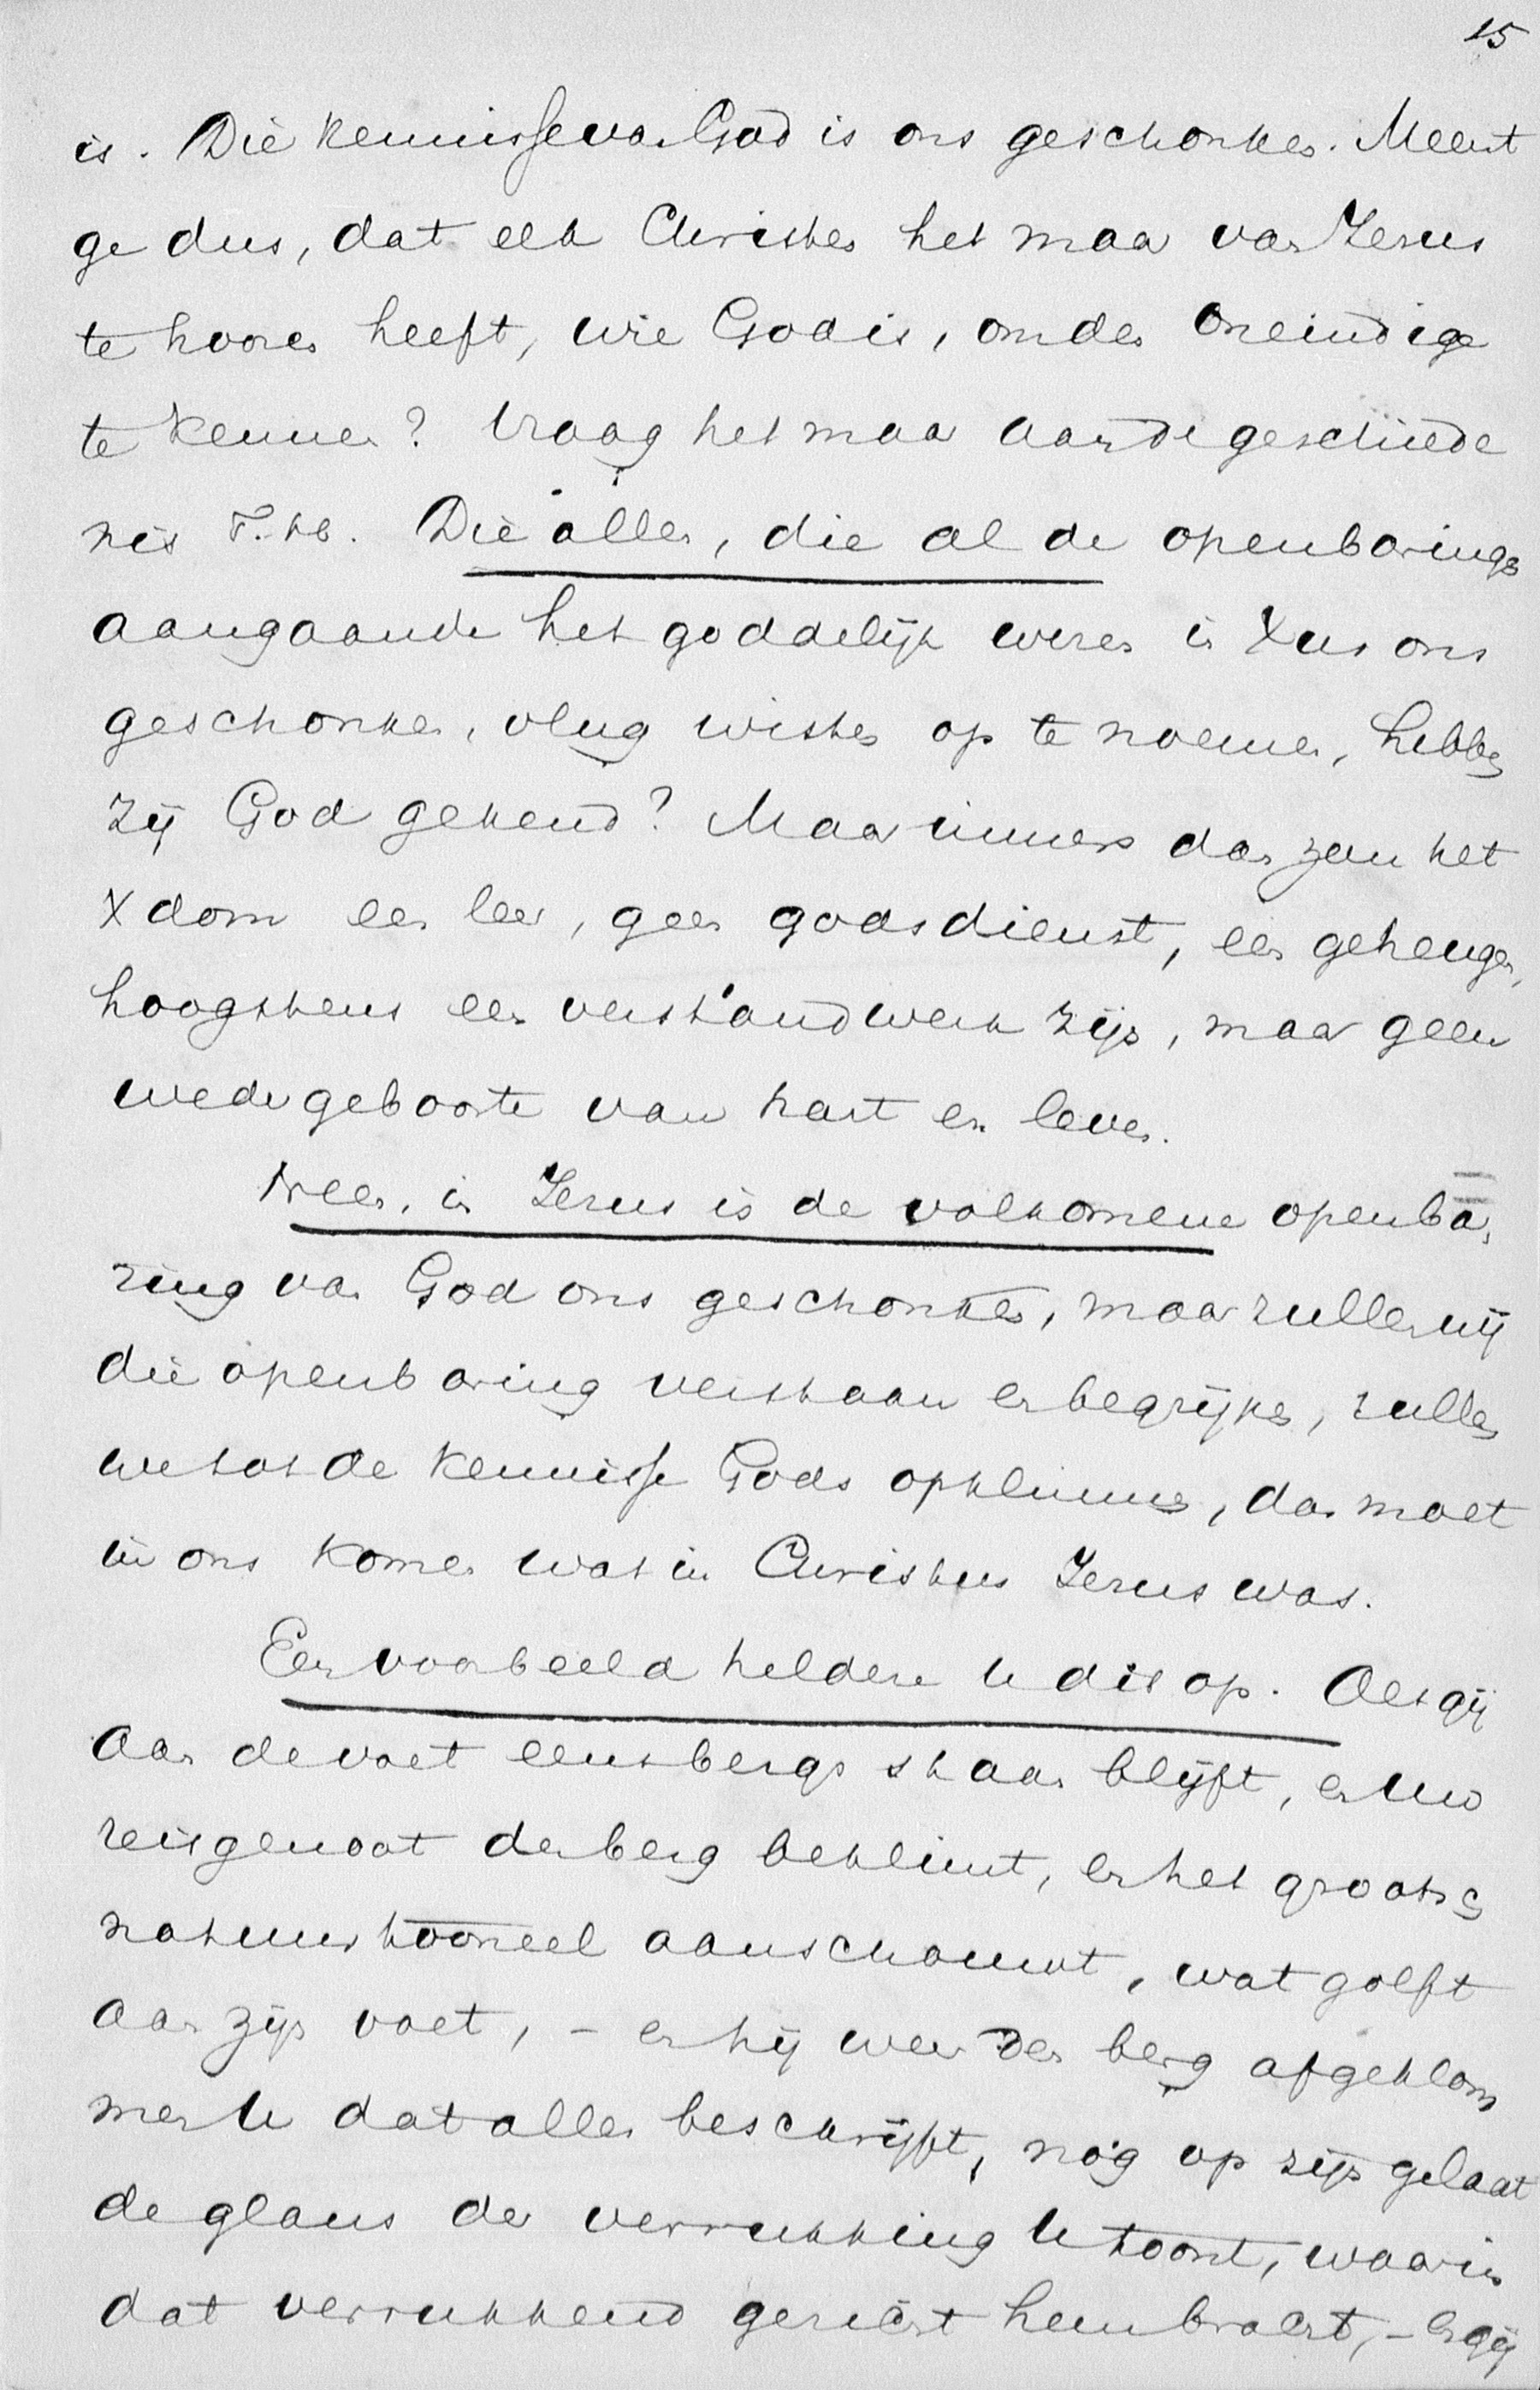 15
is. Die kennisse van God is ons geschonken. Meent
ge dus, dat elk Christen het maar van Jezus
te hooren heeft, wie God is, om den Oneindige
te kennen? Vraag het maar aan de geschiede
nis T. hb. Die allen, die al de openbarings
aangaande het goddelijk wezen in Xus ons
geschonken, vlug wisten op te noemen, hebben
zij God gekend? Maar immers dan zou het
Xdom een leer, geen godsdienst, een geheugen,
hoogstens een verstandwerk zijn, maar geen
wedergeboorte van hart en leven.
Neen, in Jezus is de volkomene openba,
ring van God ons geschonken, maar zullen wij
die openbaring verstaan en begrijpen, zullen
we tot de kennisse Gods opklimmen, dan moet
in ons komen wat in Christus Jezus was.
Een voorbeeld heldere U dit op. Als gij
aan de voet eens bergs staan blijft, en uw
reisgenoot den berg beklimt, en het grootsch
natuurtooneel aanschouwt, wat golft
aan zijn voet, - en hij weer den berg afgeklom
men U dat alles beschrijft, nóg op zijn gelaat
de glans der verrukking U toont, waarin
dat verrukkend gezicht hem bracht, - en gij